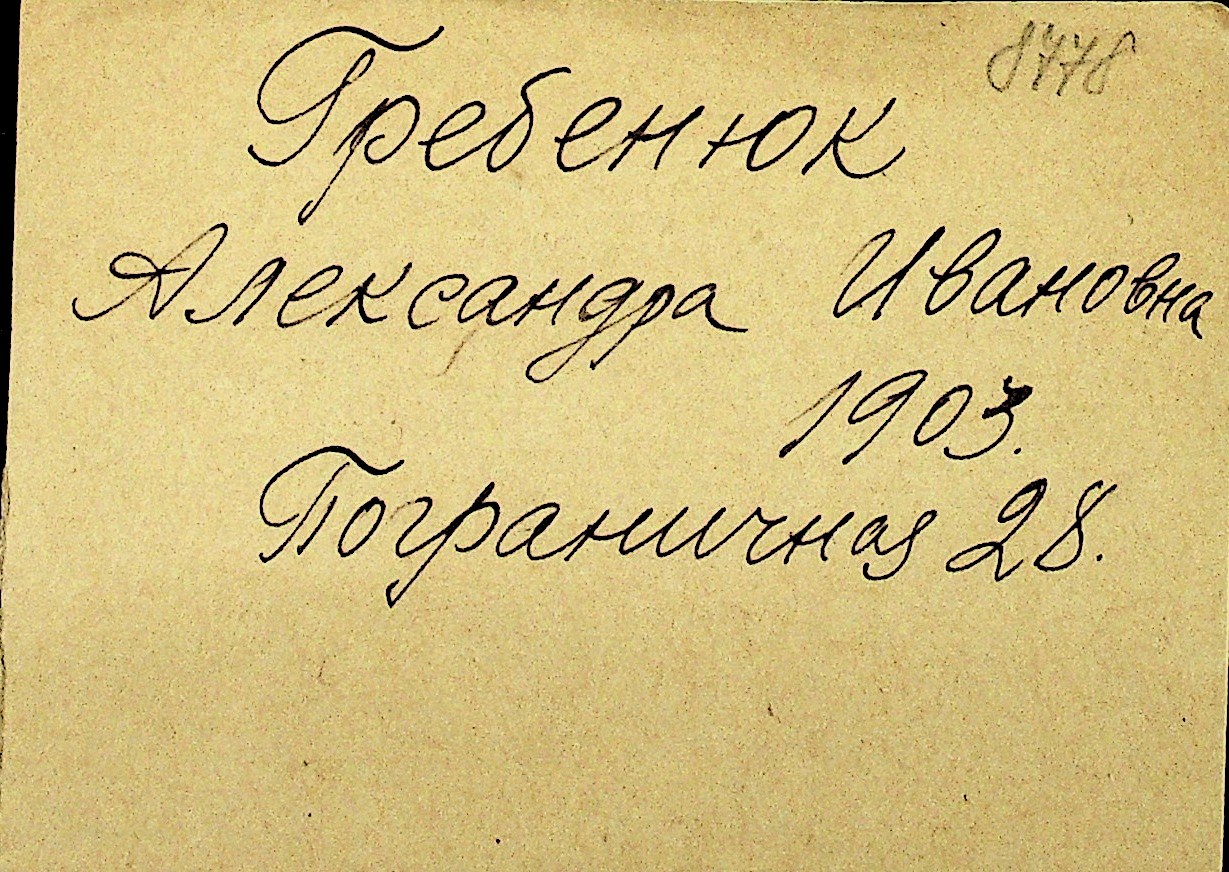 8778
Гребенюк
Александра Ивановна
1903.
Пограничная 28.